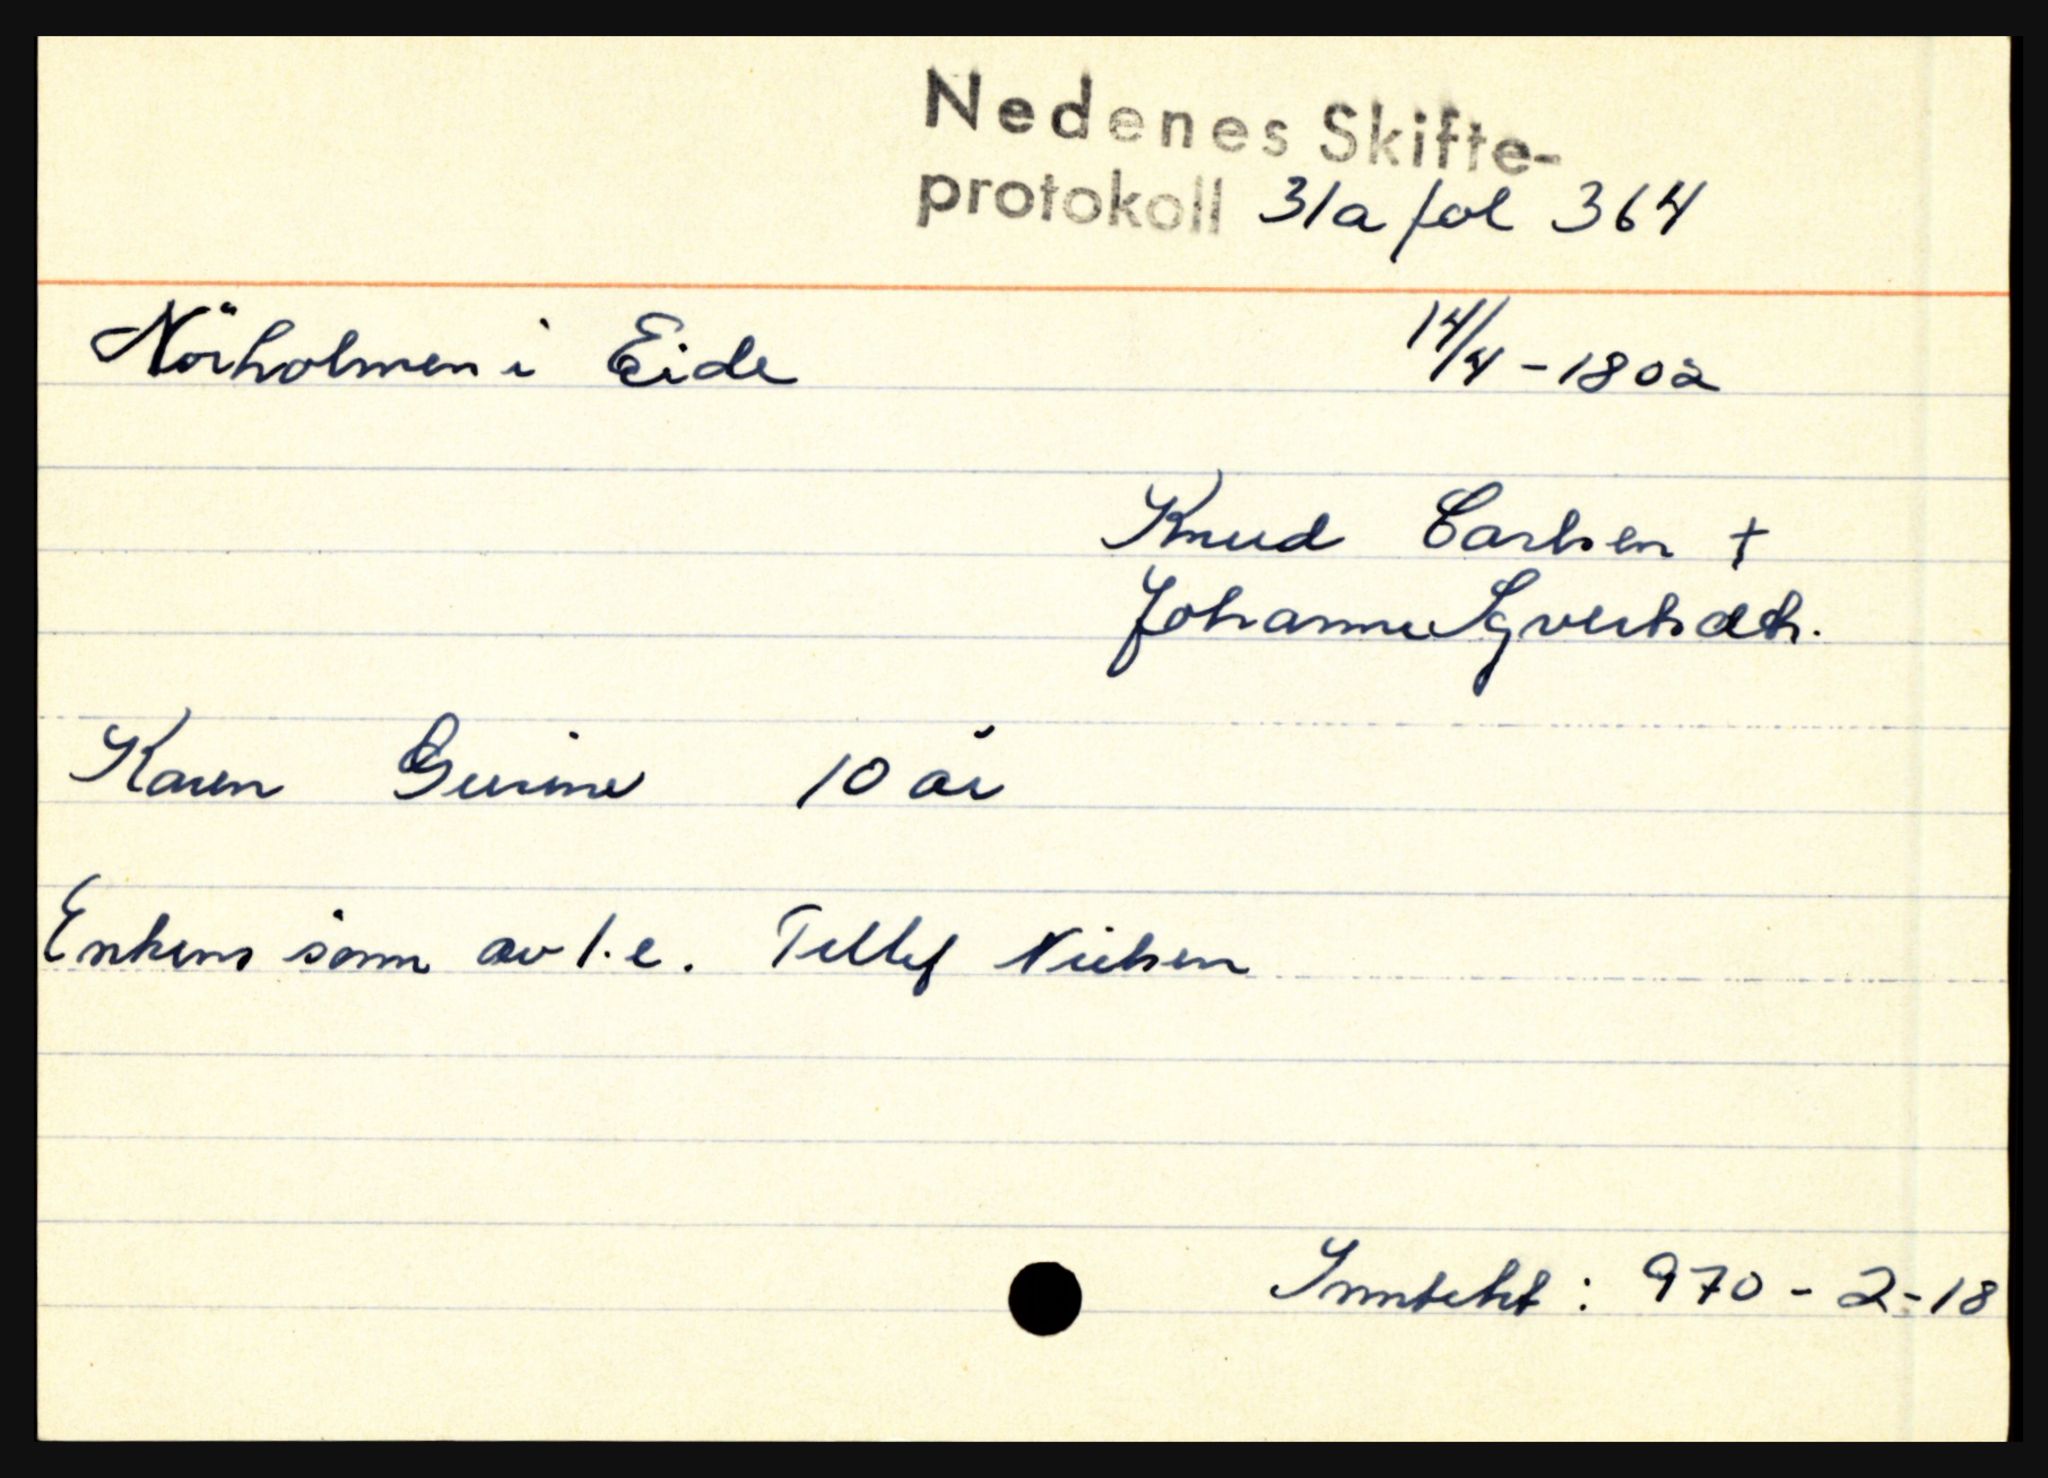 Nedenes Skifte-
protokoll 31a fol 364
Nörholmen i Eide 14/4 - 1802
Knud Carlsen +
Johanne Syvertsdtr.
Karen Gurine 10 år
Enkens sønn av 1. e. Tellef Nielsen
Inntekt : 970 - 2 - 18